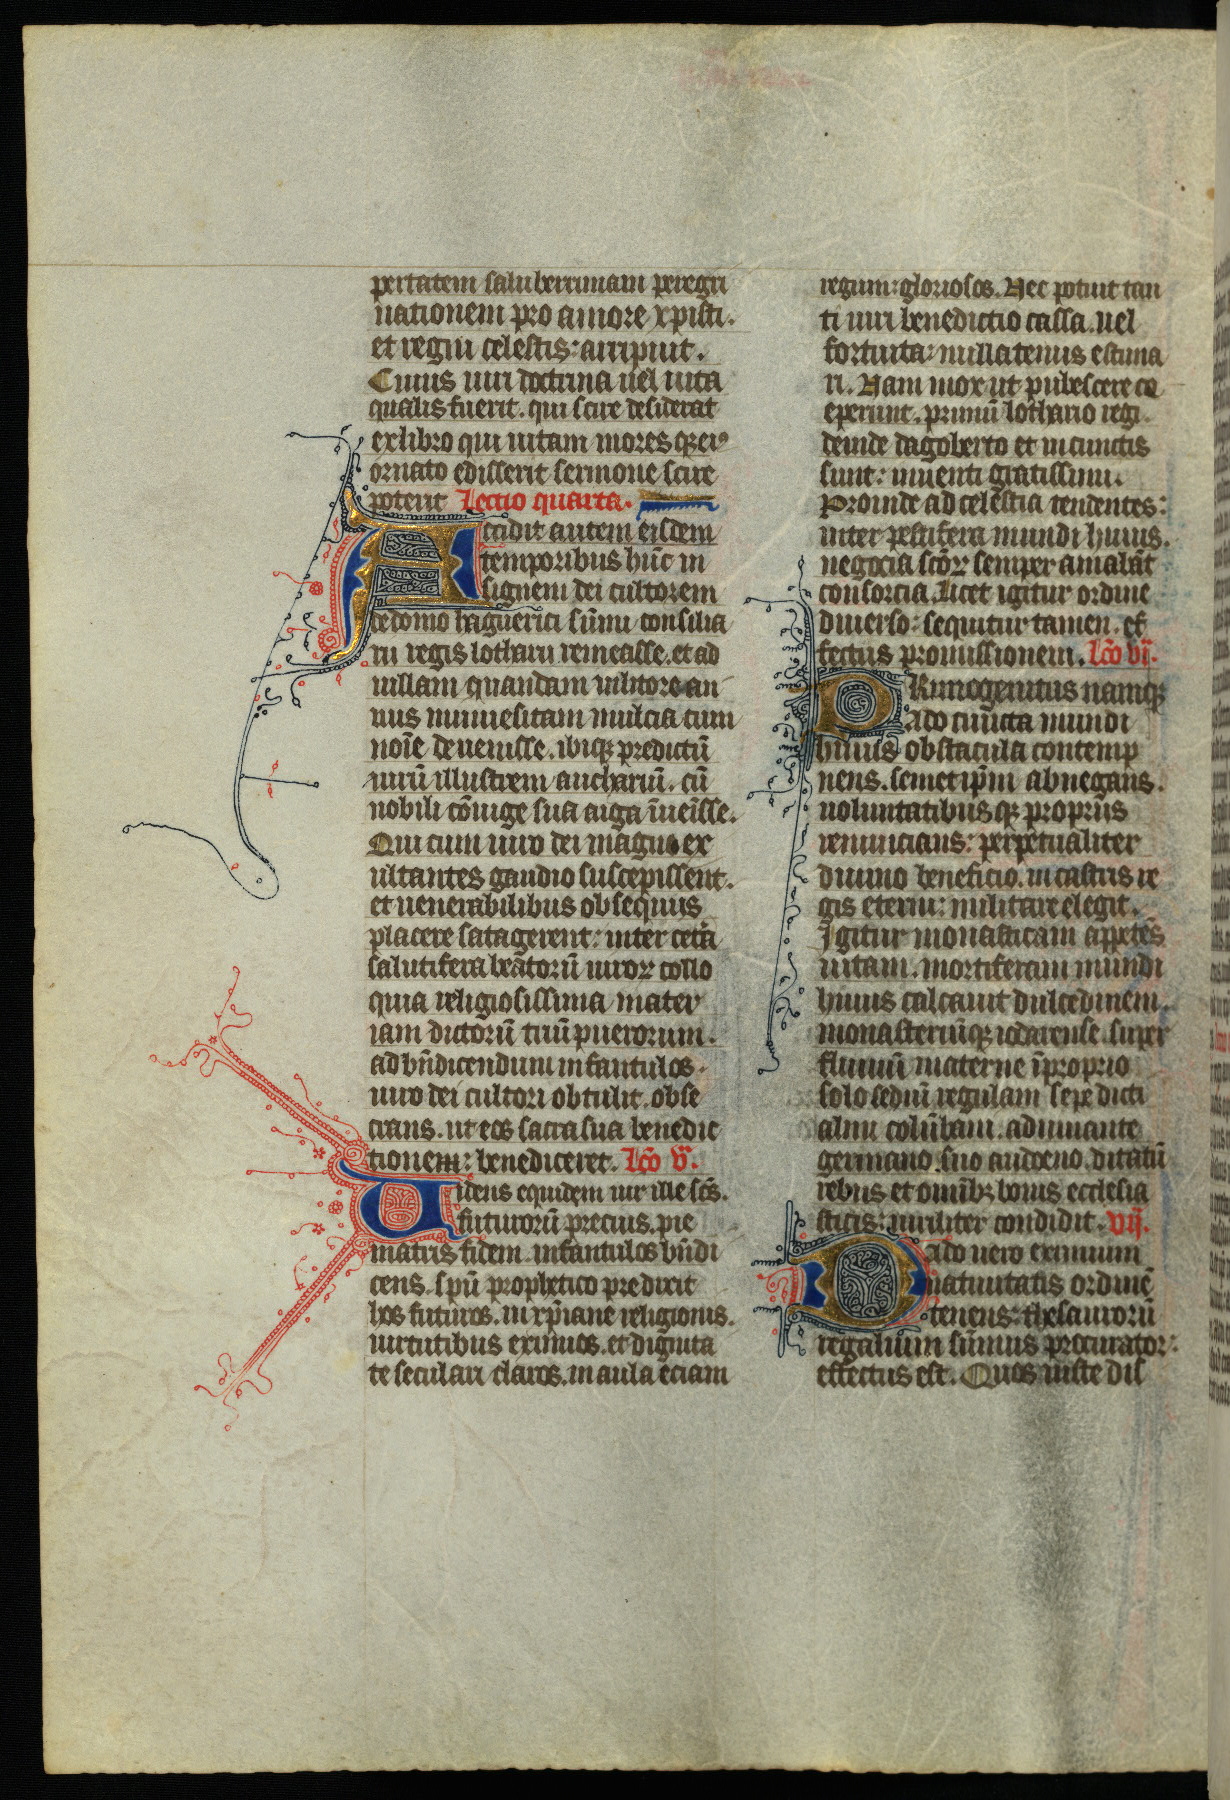 pertatem saluberrimam peregri
nationem pro amore xpisti.
et regni celestis: arripuit.
Cuius uiri doctrina uel uita
qualis fuerit. qui scire desiderat
ex libro qui uitam mores qꝫ eiꝰ
ornato edisserit sermone scire
poterit Lectio quarta.
Accidit autem eisdem
temporibus hūc in
signem dei cultorem
e domo haguerici sūmi consilia
rii regis lotharii remeasse. et ad
uillam quandam
nus miniue sitam mulcia cum
noīe deuenisse. ibiqꝫ predictū
uirū illustrem auchariū. cū
nobili cōiuge sua aiga īueīsse.
Qui cum uiro dei magno ex
ultantes gaudio suscepissent.
et uenerabilibus obsequiis
placere satagerent: inter cetā
salutifera beatorū uiroꝝ collo
quia religiosissima mater
iam dictorū triū puerorum.
ad bn̄dicendum infantulos
uiro dei cultori obtulit. obse
crans. ut eos sacra sua benedic
tionem: benediceret. Lc̄o v̄.
Uidens equidem uir ille sc̄s.
futurorū precius. pie
matris fidem. infantulos bn̄di
cens. spū prophetico predixit
hos futuros. in xp̄iane religionis.
uirtutibus eximios. et dignita
te seculari claros. in aula eciam
regum: gloriosos. Nec potuit tan
ti uiri benedictio cassa. uel
fortuita: nullatenus estima
ri. Nam mox ut pubescere co
eperunt. primū lothario regi.
deinde dagoberto et in cunctis
sunt: inuenti gratissimi.
Proinde ad celestia tendentes:
inter pestifera mundi huius.
negocia sc̄oꝝ semper amabāt
consorcia. Licet igitur ordine
diuerso: sequitur tamen. ef
fectus promissionem. Lc̄o vj̄.
PRimogenitus namqꝫ
Ado cuncta mundi
huius obstacula contemp
nens. semetip̄m abnegans.
uoluntatibus qꝫ propriis
renuncians: perpetualiter
diuino beneficio. in castris re
gis eterni: militare elegit.
Igitur monasticam appetēs
uitam. mortiferam mundi
huius calcauit dulcedinem.
monasteriūqꝫ iodarense. super
fluuiū materne īproprio
solo sediū regulam sepe dicti
almi colūbani. adiuuante
germano suo audoeno. ditatū
rebus et omībꝫ bonis ecclesia
sticis: uiriliter condidit. vij̄.
Dado uero eximium
natiuitatis ordinē
tenens: thesaurorū
regalium sūmus procurator:
effectus est. Quos iuste dil